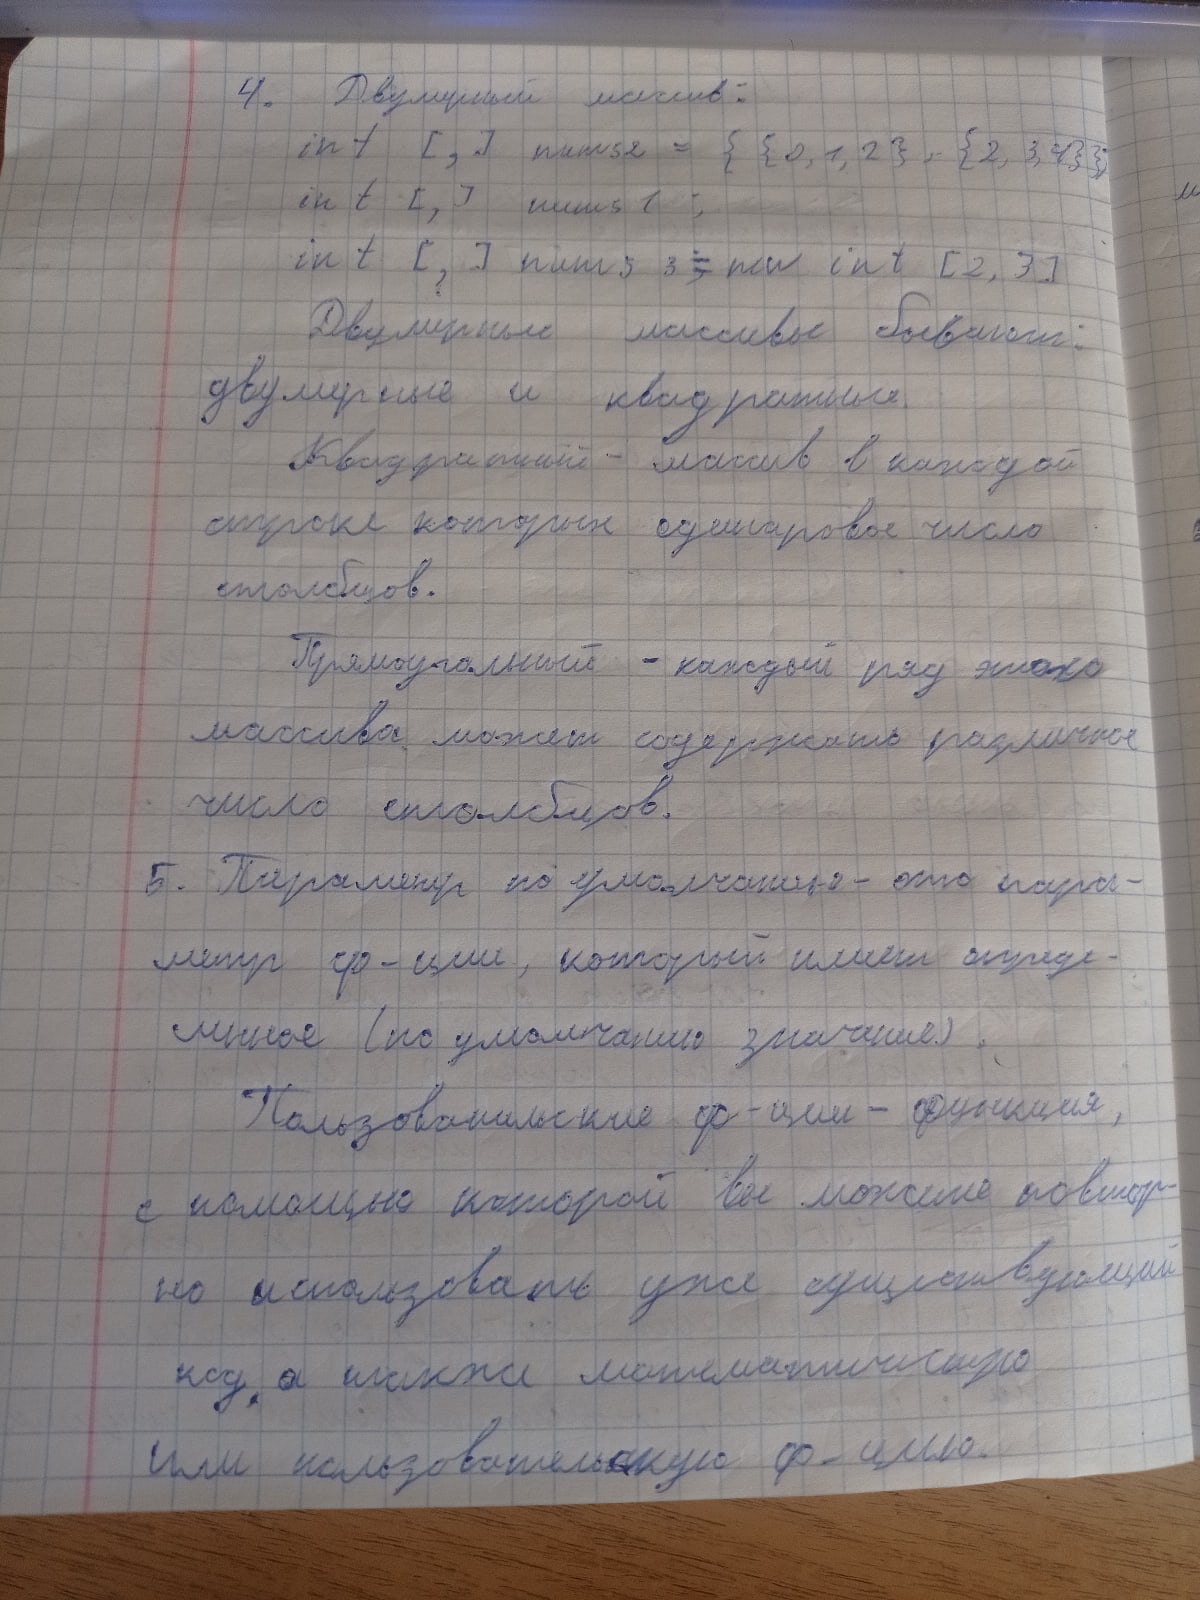 4. Двумерный массив:
int [,] nums2 = { {0, 1, 2}, {2, 3, 4}};
int [,] nums 1 ;
int [,] nums 3 = new int [2, 3]
Двумерные массивы бывают:
двумерные и квадратные.
Квадратный - массив в каждой
строке которых одинаровое число
столбцов.
Прямоугольный - каждый ряд этого
массива может содержать различное
число столбцов.
5. Параметр по умолчанию - это пара-
метр ф-ции, который имеет опреде-
ленное (по умолчанию значение).
Пользовательские ф-ции - функция,
с помощью которой вы можете повтор-
но использовать уже существующий
код, а также математическую
или пользовательскую ф-цию.